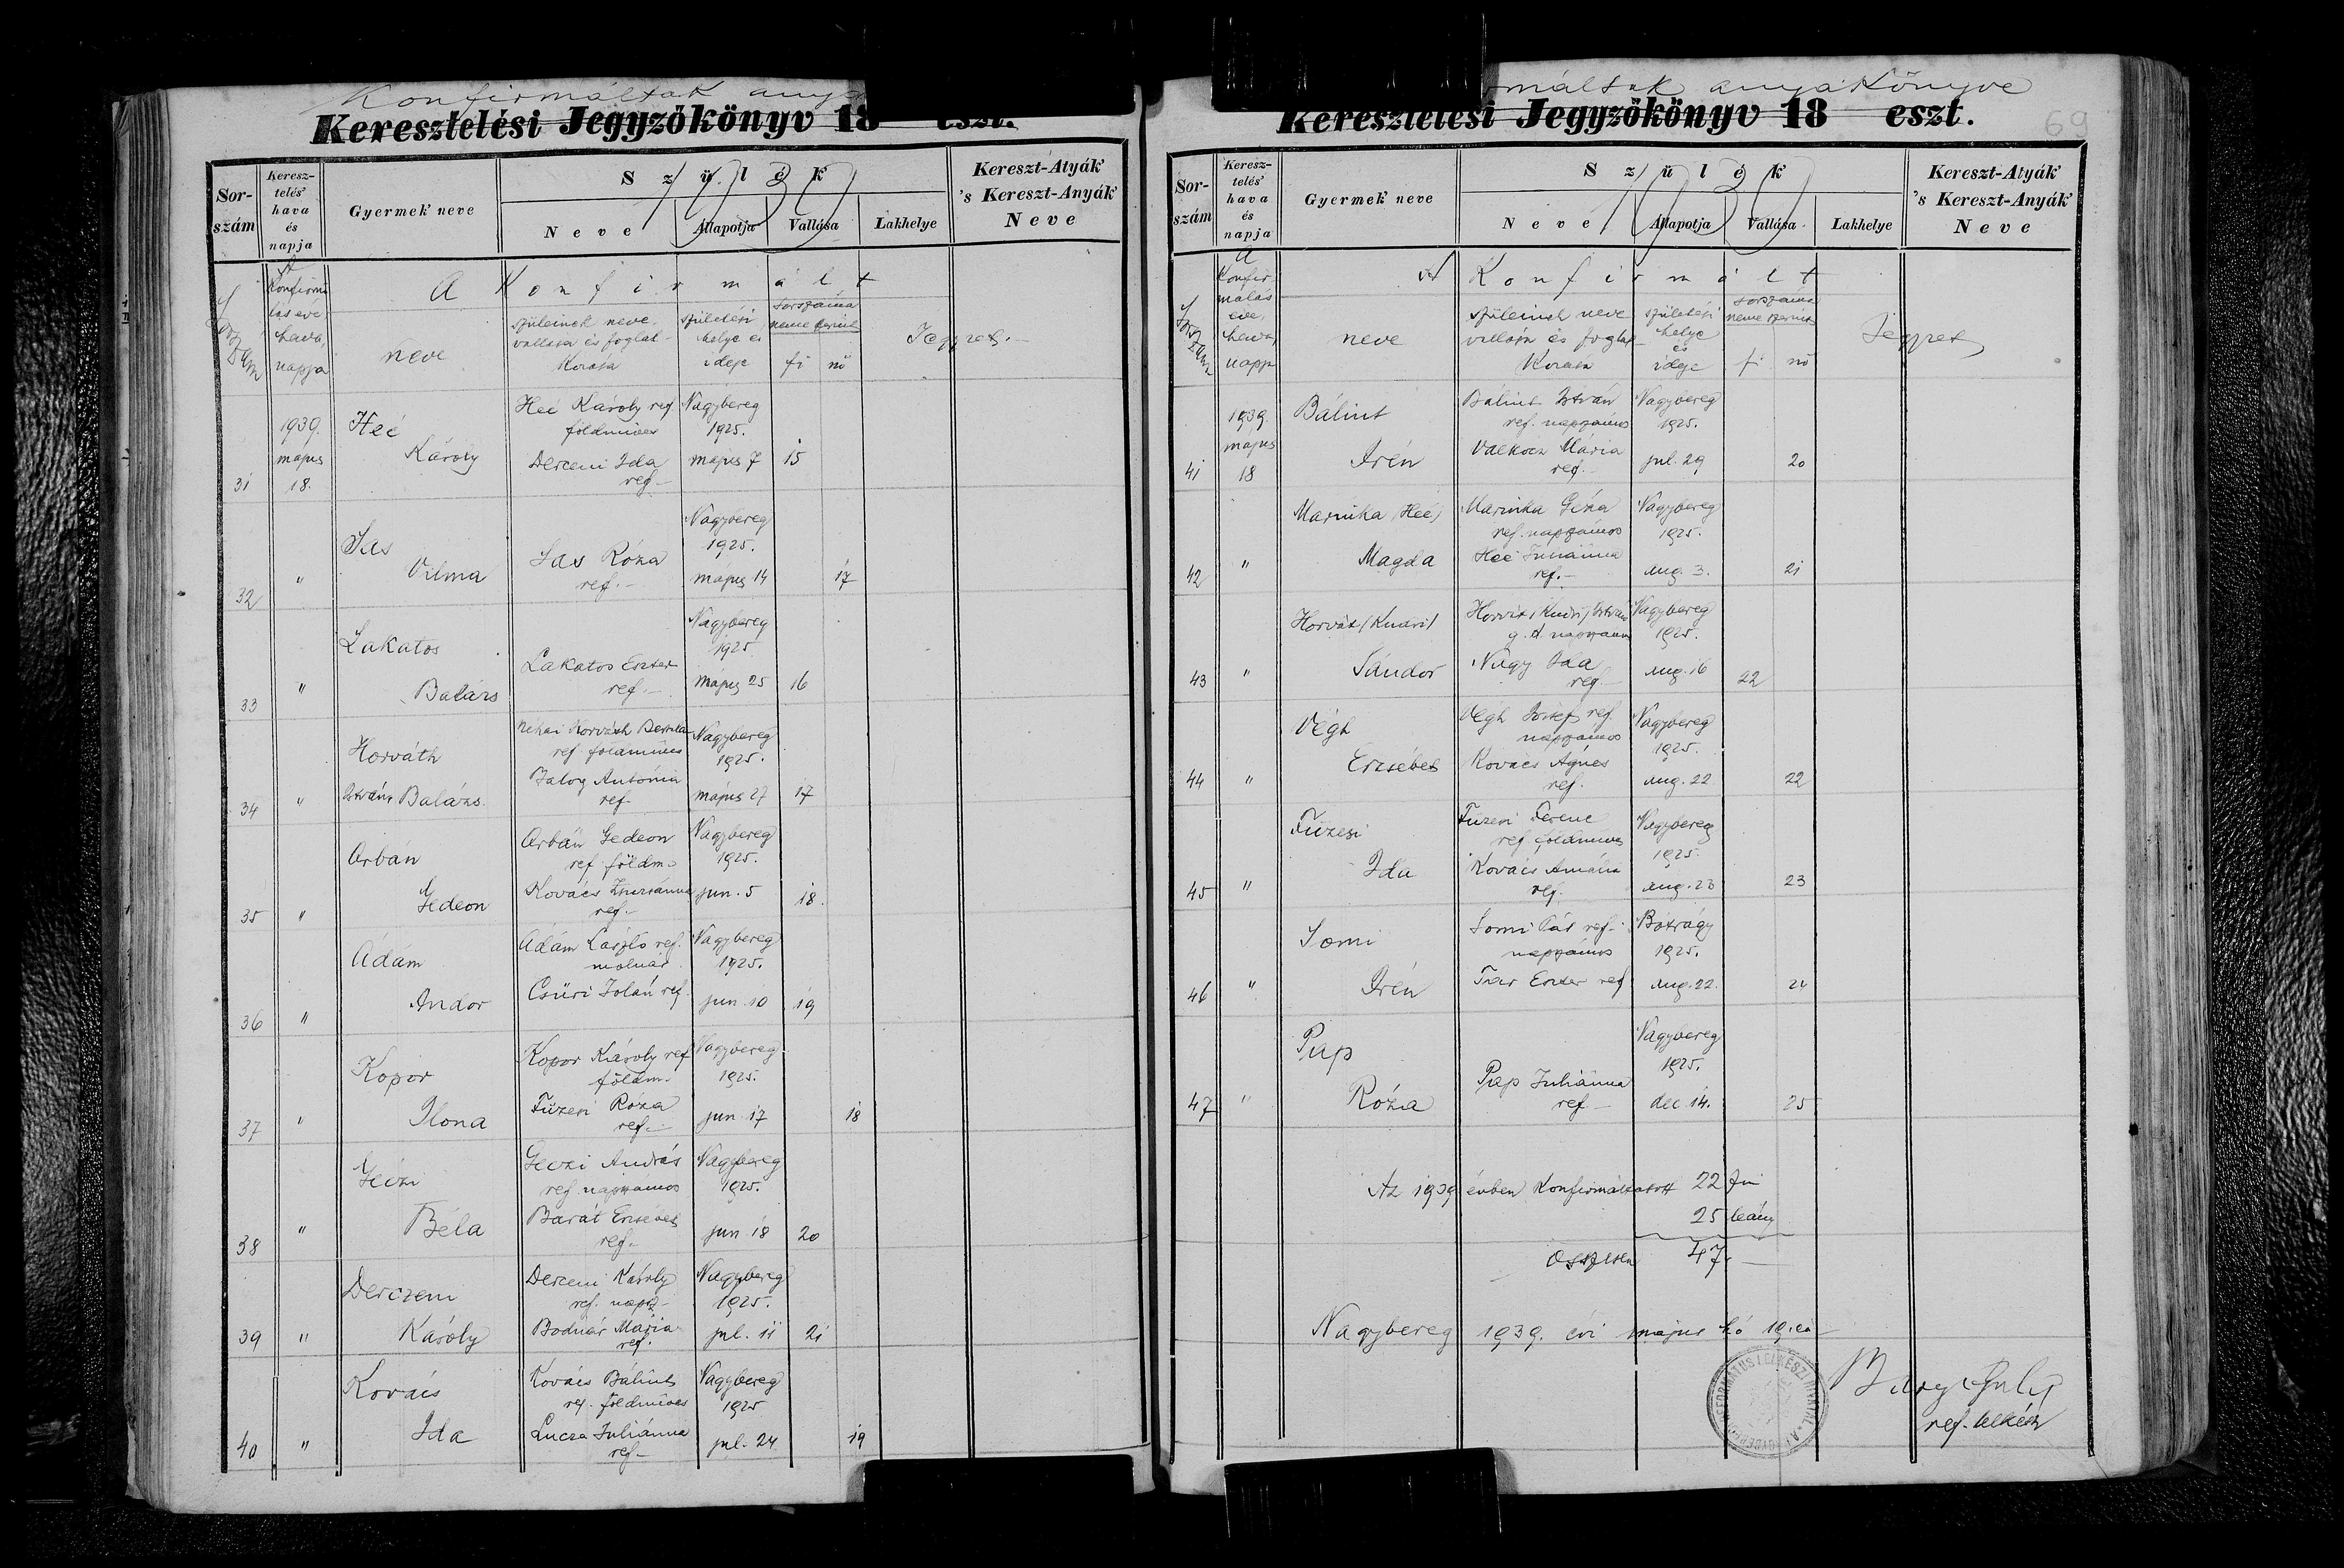 Konfirmáltak
Keresztelési Jegyzőkönyv 18 eszt.
Sor-
szám
Keresz-
telés'
hava
és
napja
Gyermek neve
Szülék
1939
Neve
Állapotja
Vallása
Lakhelye
Kereszt-Atyák'
's Kereszt-Anyák'
Neve
Sorszám
A
hava,
napja
A Konfirmált
neve
szüleinek neve,
vallása és foglal-
kozása
születési
helye és
ideje
sorszáma
neme szerint
fi nő
Jegyzet.-
31
1939.
május
18.
Heé
Károly
Heé Károly ref
földmíves
Derceni Ida
ref.-
Nagybereg
1925.
május 7
15
32
"
Sas
Vilma
Sas Róza
ref.-
Nagybereg
1925.
május 14
17
33
"
Lakatos
Balázs
Lakatos Eszter
ref.-
Nagybereg
1925
május 25
16
34
"
Horváth
István Balázs
Néhai Horváth
ref. földmíves
Balog Antónia
ref.
Nagybereg
1925.
május 27
17
35
"
Orbán
Gedeon
Orbán Gedeon
ref. földm.
Kovács Zsuzsánna
ref.-
Nagybereg
1925.
jun. 5
18.
36
"
Ádám
Andor
Ádám László ref.
molnár
Csűri Jolán ref.
Nagybereg
1925.
jun. 10
19
37
"
Kopor
Ilona
Kopor Károly ref
földm.
Füzesi Róza
ref.-
Nagybereg
1925.
jun. 17
18
38
"
Géczi
Béla
Géczi András
ref. napszámos
Barát Erzsébet
ref.-
Nagybereg
1925.
jun 18
20
39
"
Derczeni
Károly
Derceni Károly
ref. napsz.
Bodnár Mária
ref.
Nagybereg
1925.
jul. 11
21
40
"
Kovács
Ida
Kovács Bálint
ref. földmíves
Lucza Juliánna
ref.-
Nagybereg
1925
jul. 24
19
máltak anyakönyve
Keresztelési Jegyzőkönyv 18 eszt.
69
Sor-
szám
Keresz-
telés'
hava
és
napja
Gyermek neve
Szülék
1939
Neve
Állapotja
Vallása
Lakhelye
Kereszt-Atyák'
's Kereszt-Anyák'
Neve
Sorszám
A
Konfir-
málás
éve,
hava,
napja
A Konfirmált
neve
szüleinek neve
vallása és foglal-
kozása
születési
helye
és
ideje
sorszáma
neme szerint
fi nő
Jegyzet
41
1939.
május
18
Bálint
Irén
Bálint István
ref. napszámos
Mária
ref.-
Nagybereg
1925.
jul. 29
20
42
"
Marinka (Heé)
Magda
Marinka Géza
ref. napszámos
Heé Juliánna
ref.-
Nagybereg
1925.
aug. 3.
21
43
"
Sándor
Nagy Ida
ref.-
Nagybereg
1925.
aug. 16
22
44
"
Végh
Erzsébet
Végh József ref.
napszámos
Kovács Ágnes
ref.
Nagybereg
1925.
aug. 22
22
45
"
Füzesi
Ida
Füzesi Ferenc
ref. földmíves
Kovács Amália
ref.
Nagybereg
1925.
aug. 23
23
46
"
Somi
Irén
Somi Pál ref.
napszámos
Eszter ref
Bótrágy
1925.
aug. 22.
24
47
"
Pap
Róza
Pap Juliánna
ref.-
Nagybereg
1925.
dec 14.
25
Az 1939 évben Konfirmáltatott 22 fiu
25 leány
összesen 47.-
Nagybereg 1939. évi május hó 19.én
ref. lelkész